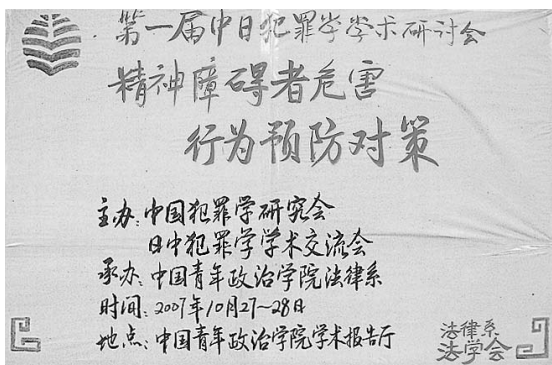 第一届中日犯罪学学术研讨会
精神障碍者危害
行为预防对策
主办:中国犯罪学研究会
日中犯罪学学术交流会
承办:中国青年政治学院法律系
时间:2007年10月27~28日
地点:中国青年政治学院学术报告厅
法律系
法学会